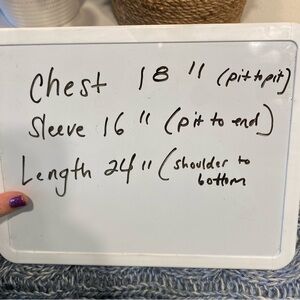 Chest 18 " (pit to pit)
Sleeve 16 " (pit to end)
Length 24 " (shoulder to
bottom